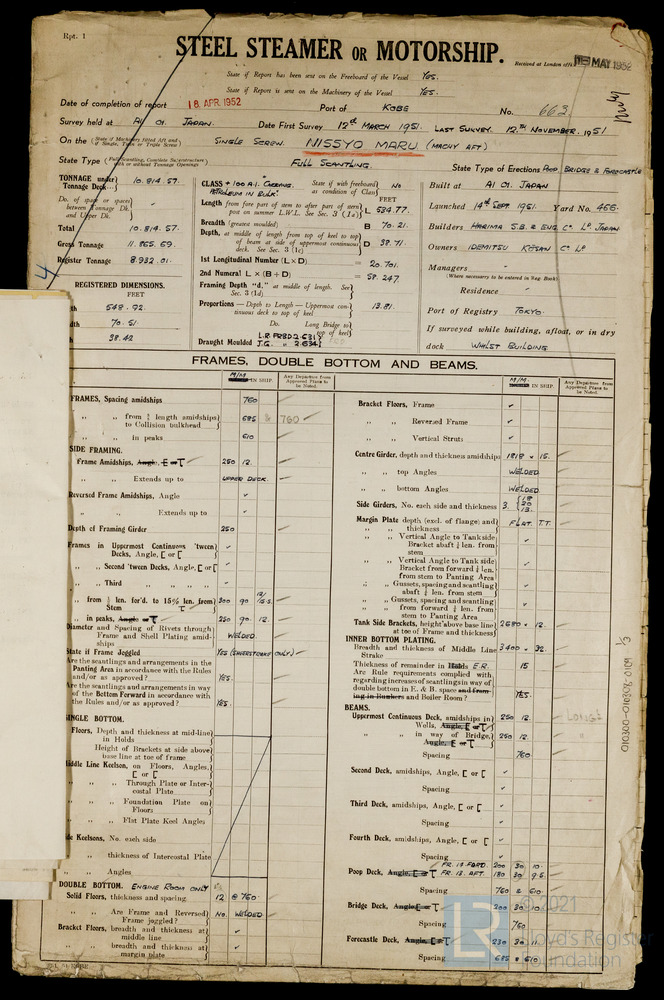 Rpt. 1
STEEL STEAMER OR MOTORSHIP.
Received at London office
MAY 1952
State if Report has been sent on the Freeboard of the Vessel Yes.
State if Report is sent on the Machinery of the Vessel Yes.
Date of completion of report 18 APR 1952 Port of KOBE No. 663
Survey held at AIOI. JAPAN. Date First Survey 12th MARCH 1951. LAST SURVEY 12TH NOVEMBER, 1951
On the (State if Machinery fitted Aft and if Single, Twin or Triple Screw) SINGLE SCREW. NISSYO MARU. (MACHY AFT)
State Type (Full Scantling, Complete Superstructure with or without Tonnage Openings) FULL SCANTLING.
State Type of Erections POOP BRIDGE & FORECASTLE
TONNAGE under Tonnage Deck 10.814.57.
Do. of space or spaces between Tonnage Dk. and Upper Dk.
Total 10.814.57.
Gross Tonnage 11.865.69.
Register Tonnage 8.932.01.
REGISTERED DIMENSIONS.
FEET
548.92.
70.51
38.42
CLASS +100 A.1. CARRYING PETROLEUM IN BULK State if with freeboard as condition of Class No
FEET
Length from fore part of stem to after part of stern post on summer L.W.L. See Sec. 3 (1a) L 534.77.
Breadth (greatest moulded) B 70.21.
Depth, at middle of length from top of keel to top of beam at side of uppermost continuous deck. See Sec. 3 (1c) D 38.71.
1st Longitudinal Number (L × D) = 20.701.
2nd Numeral L × (B + D) = 58.247.
Framing Depth "d," at middle of length. See Sec. 3 (1d)
Proportions — Depth to Length — Uppermost continuous deck to top of keel 13.81.
Do. Long Bridge to top of keel
Draught Moulded
Built at AIOI. JAPAN
Launched 14th SEPT. 1951. Yard No. 466.
Builders HARIMA S.B. & ENG. Co. Ld. JAPAN
Owners IDEMITSU KOSAN Co. Ld
Managers
(Where necessary to be entered in Reg. Book)
Residence
Port of Registry TOKYO.
If surveyed while building, afloat, or in dry dock WHILST BUILDING
FRAMES, DOUBLE BOTTOM AND BEAMS.
M/M IN SHIP.
Any Departure from Approved Plans to be Noted.
FRAMES, Spacing amidships 760
,, ,, from ¾ length amidships to Collision bulkhead 685 760
,, ,, in peaks 610
SIDE FRAMING.
Frame Amidships, Angle, E or T 250 12.
,, ,, Extends up to UPPER DECK.
Reversed Frame Amidships, Angle
,, ,, Extends up to
Depth of Framing Girder 250
Frames in Uppermost Continuous 'tween Decks, Angle, [ or [
,, ,, Second 'tween Decks, Angle, [ or [
,, ,, Third ,, ,, ,, ,,
,, from ¾ len. for'd. to 15% len. from Stem 300 90
,, in peaks, Angle or T 250 90 12.
Diameter and Spacing of Rivets through Frame and Shell Plating amidships WELDED
State if Frame Joggled YES
Are the scantlings and arrangements in the Panting Area in accordance with the Rules and/or as approved? YES.
Are the scantlings and arrangements in way of the Bottom Forward in accordance with the Rules and/or as approved? YES.
SINGLE BOTTOM.
Floors, Depth and thickness at mid-line in Holds
Height of Brackets at side above base line at toe of frame
Middle Line Keelson, on Floors, Angles, [ or [
,, ,, Through Plate or Intercostal Plate
,, ,, Foundation Plate on Floors
,, ,, Flat Plate Keel Angles
Side Keelsons, No. each side
,, ,, thickness of Intercostal Plate
,, ,, Angles
DOUBLE BOTTOM. ENGINE ROOM ONLY
Solid Floors, thickness and spacing 12 @ 760
,, ,, Are Frame and Reversed Frame joggled? NO. WELDED
Bracket Floors, breadth and thickness at middle line
,, ,, breadth and thickness at margin plate
M/M. IN SHIP.
Any Departure from Approved Plans to be Noted.
Bracket Floors, Frame
,, ,, Reversed Frame
,, ,, Vertical Struts
Centre Girder, depth and thickness amidships 1818 × 15.
,, ,, top Angles WELDED
,, ,, bottom Angles WELDED
Side Girders, No. each side and thickness 3.
Margin Plate depth (excl. of flange) and thickness FLAT. T.T.
,, ,, Vertical Angle to Tank side Bracket abaft ¼ len. from stem
,, ,, Vertical Angle to Tank side Bracket from forward ¼ len. from stem to Panting Area
,, ,, Gussets, spacing and scantling abaft ¼ len. from stem
,, ,, Gussets, spacing and scantling from forward ¼ len. from stem to Panting Area
Tank Side Brackets, height above base line at toe of Frame and thickness 2680 × 12.
INNER BOTTOM PLATING.
Breadth and thickness of Middle Line Strake 3400 × 32.
Thickness of remainder in Holds E.R. 15
Are Rule requirements complied with regarding increases of scantlings in way of double bottom in E. & B. space and framing in Bunkers and Boiler Room? YES.
BEAMS.
Uppermost Continuous Deck, amidships in Wells, Angle, E or T 250 12.
,, ,, in way of Bridge, Angle, E or T 250 12.
Spacing 760
Second Deck, amidships, Angle, [ or [
Spacing
Third Deck, amidships, Angle, [ or [
Spacing
Fourth Deck, amidships, Angle, [ or [
Spacing
Poop Deck, Angle, E or T FR. 13 FORD. 200 90 10.
FR. 13. AFT. 180 90 9.5
Spacing 760 & 610
Bridge Deck, Angle, E or T 200 90 10
Spacing 760
Forecastle Deck, Angle, E or T 230 90 11
Spacing 685 & 610
010300-010308-0109 1/3
LR
© 2021
Lloyd's Register
Foundation